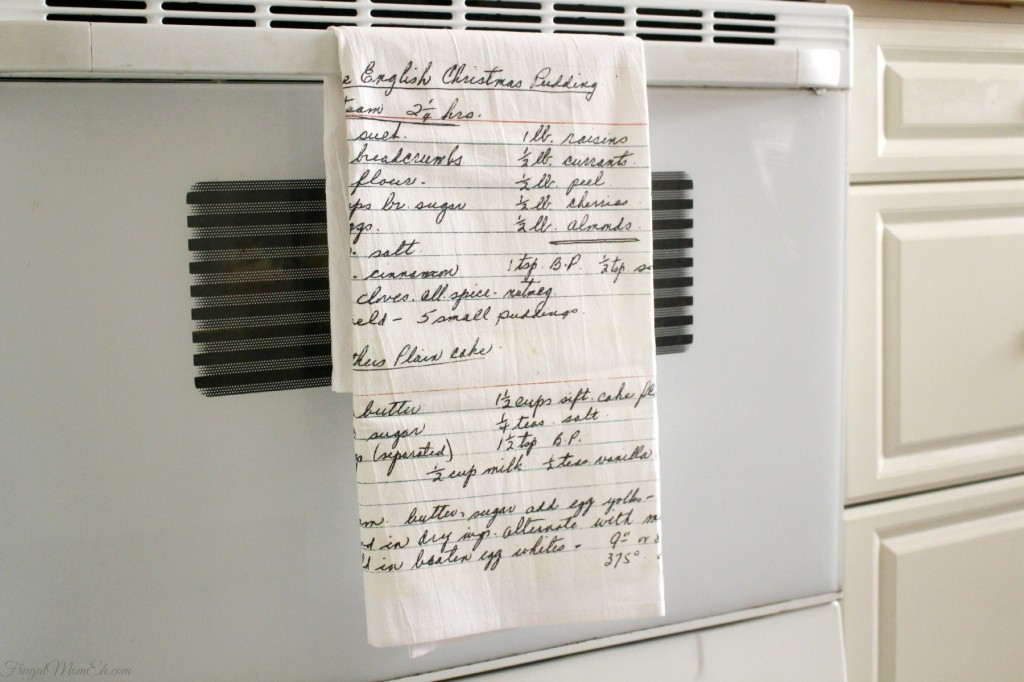 e English Christmas Pudding
team 2 1/4 hrs.
suet. 1 lb. raisins
breadcrumbs 1/2 lb. currants.
flour. 1/2 lb. peel
ps br. sugar 1/2 lb. cherries
gs. 1/2 lb. almonds.
. salt
. cinnamon 1 tsp. B.P. 1/2 tsp so
cloves. all spice - nutmeg
eld - 5 small puddings.
thers Plain cake.
butter 1 1/2 cups sift. cake fl
sugar 1/4 teas. salt.
s (separated) 1 1/2 tsp B.P.
1/2 cup milk 1/2 teas. vanilla
m. butter, sugar add egg yolks -
d in dry ings. alternate with m
d in beaten egg whites - 9" or
375°.
FrugalMomEh.com